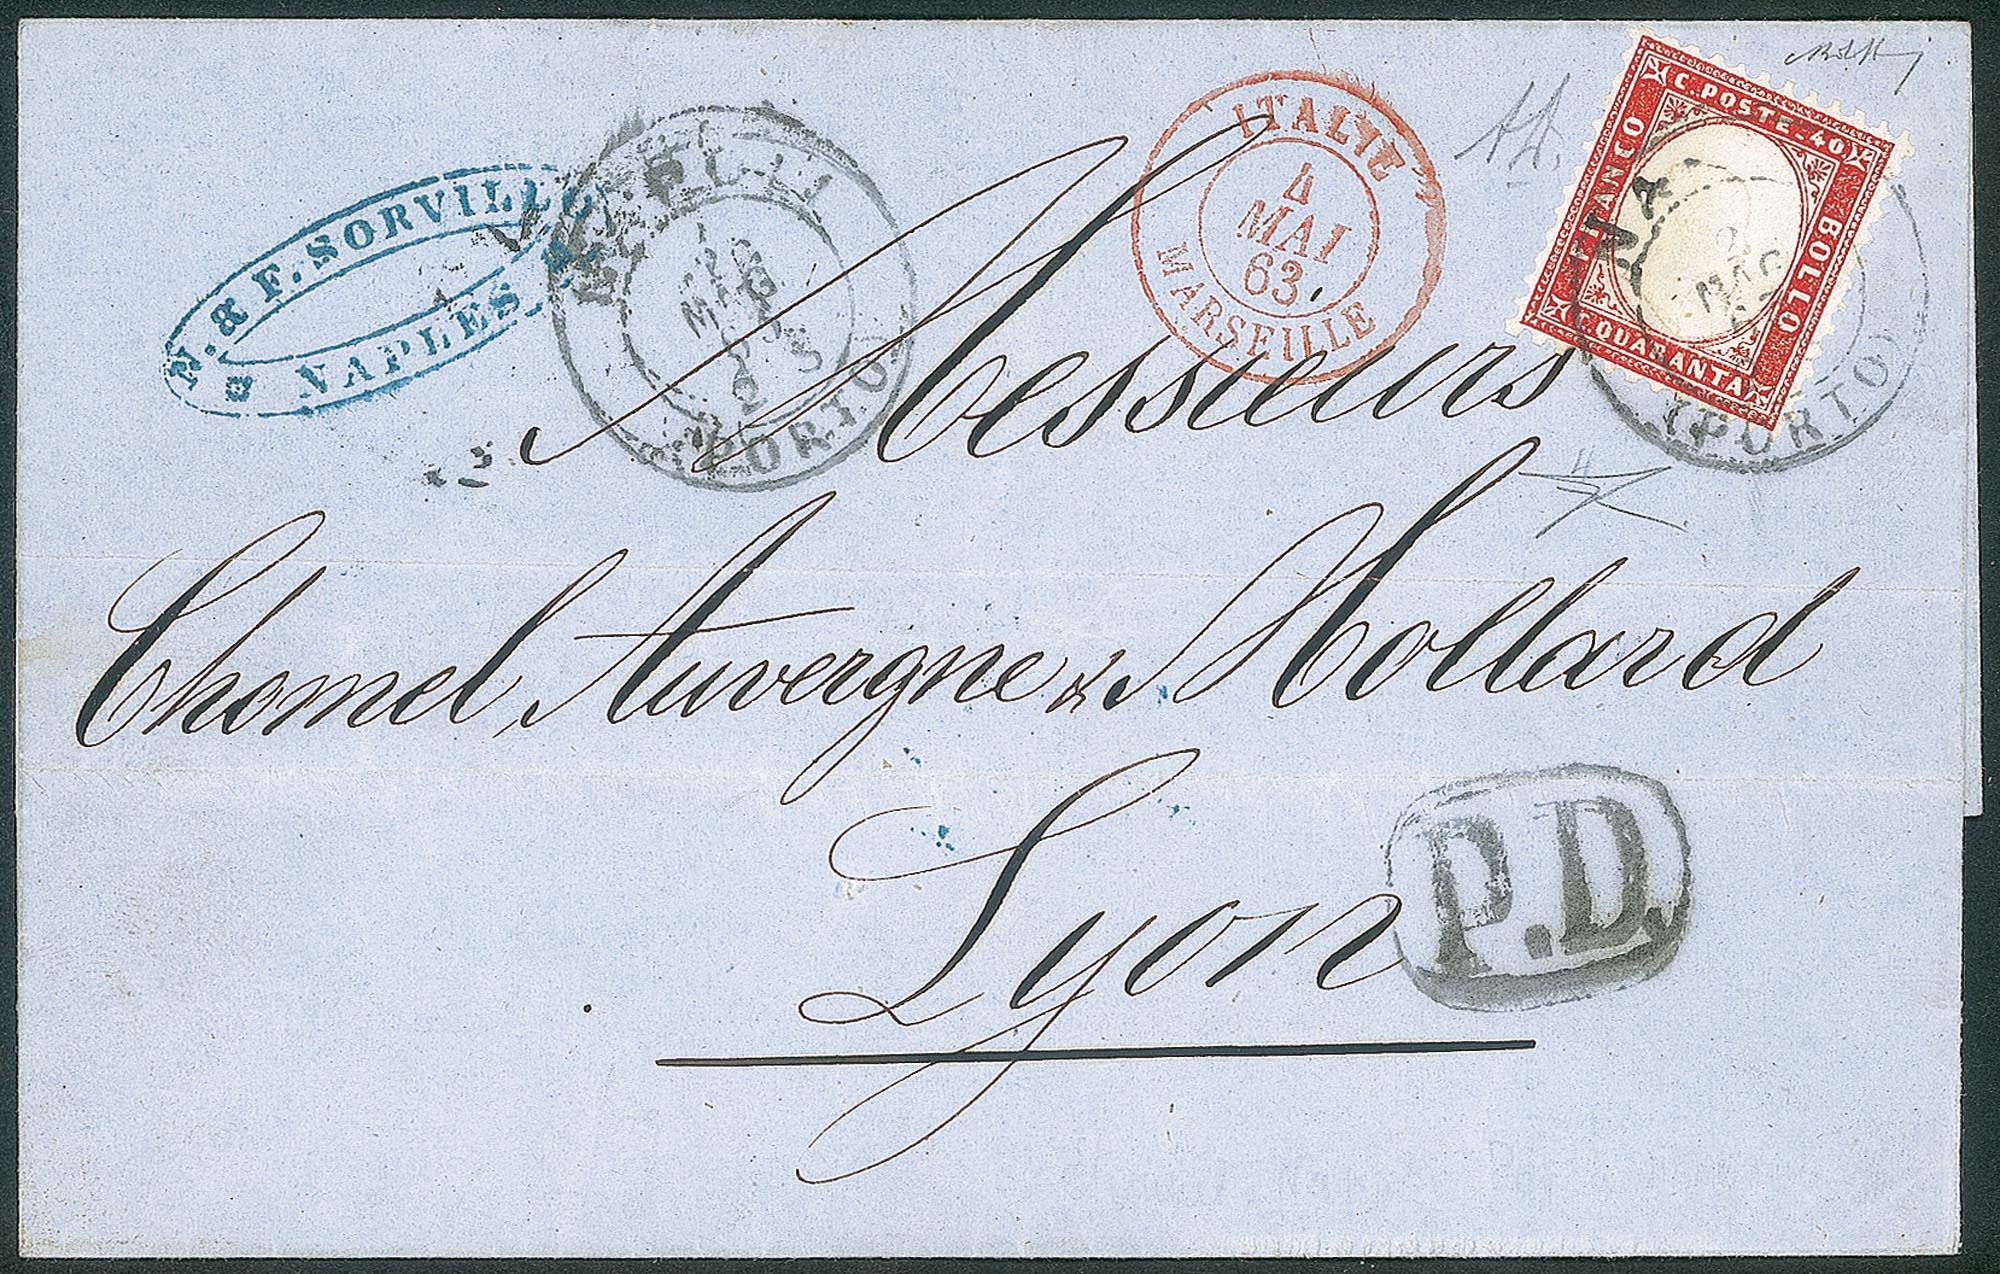 N. & F. SORVILLO
NAPLES
NAPOLI
MAG
PORTO
ITALIE
4
MAI
63
MARSEILLE
C. POSTE. 40
FRANCO
BOLLO
QUARANTA
MAG
(PORTO)
Messieurs
Chomel, Auvergne & Mollard
Lyon
P.D.